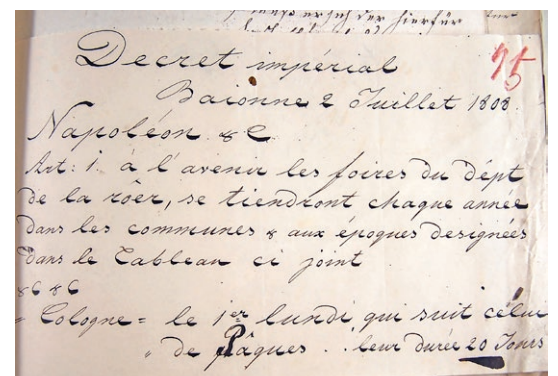 ersuch der hierfür
Decret impérial
95
Baionne 2 Juillet 1808.
Napoléon &C
Art: 1. à l'avenir les foires du dépt
de la röer, se tiendront chaque année
dans les communes & aux époques designées
dans le Tableau ci joint
&C &C
= Cologne = le 1er lundi qui suit célui
" de Pâques . . leur durée 20 Jours